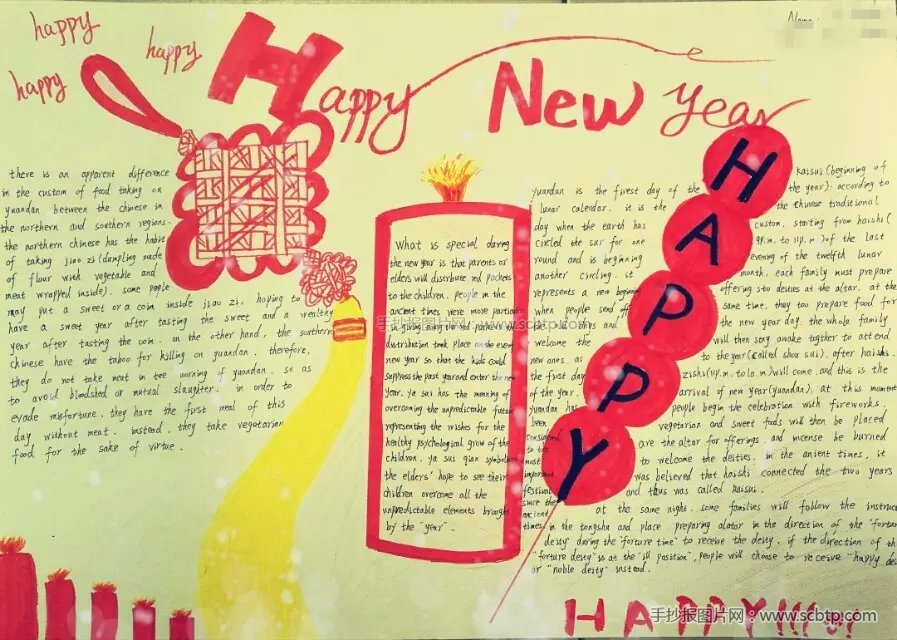 happy
happy
happy
Happy New Year
Name:
there is an apparent difference
in the custom of food taking on
yuandan between the chinese in
the northern and southern regions.
the northern chinese has the habit
of taking jiao zi (dumpling made
of flour with vegetable and
meat wrapped inside). some people
may put a sweet or a coin inside jiao zi. hoping to
have a sweet year after tasting the sweet and a wealthy
year after tasting the coin. on the other hand, the southern
chinese have the taboo for killing on yuandan. therefore,
they do not take meat in tee morning of yuandan. so as
to avoid bloodsted or mutual slaughter. in order to
evade misfortune. they have the first meal of this
day without meat. instead, they take vegetarian
food for the sake of virtue.
What is special during
the new year is that parents or
elders will distribute red pockets
to the children. people in the
ancient times were more particular
distribution took place on the even
new year so that the kids could
suppress the past year and enter the new
year. ya sui has the meaning of
overcoming the unpredictable future
representing the wishes for the
healthy psychological grow of the
children. ya sui qian symbols
the elders' hope to see their
children overcome all the
unpredictable elements brought
by the "year".
yuandan is the firest day of the
lunar calendar. it is the
day when the earth has
circled the sur for one
round and is beginning
another circling. it
represents a new beginning
when people send off
and
welcome the
new ones. as
the first day
of the year.
yuandan has
been
considered
to be
most
important
festival
since the
ancient
times
HAPPY
kaisui (beginning of
the year). according to
the chinese traditional
custom. starting from haishi (
9p.m. to 11p.m.) of the last
evening of the twelfth lunar
month. each family must prepare
offering sto deities at the altar. at the
same time, they too prepare food for
the new year day. the whole family
will then stay awake togther to attend
to the year (called shou sui). after haishi.
zishi (11p.m. to 1a.m.) will come. and this is the
arrival of new year (yuandan). at this moment
people begin the celebration with fireworks.
vegetarian and sweet foods will then be placed
are the altar for offerings and incense be burned
to welcome the deities. in the anient times, it
was believed that haishi connected the two years
and thus was called kaisui.
at the same night. some families will follow the instruc
in the tongshu and place preparing alator in the direction of the "fortun
deity" during the "forture time" to receive the deity. if the direction of th
"forture deity" is at the "ill position", people will choose to receive "happy dei
or "noble deity" instead.
HAPPY!!!
手抄报图片网：www.scbtp.com
手抄报图片网：www.scbtp.com